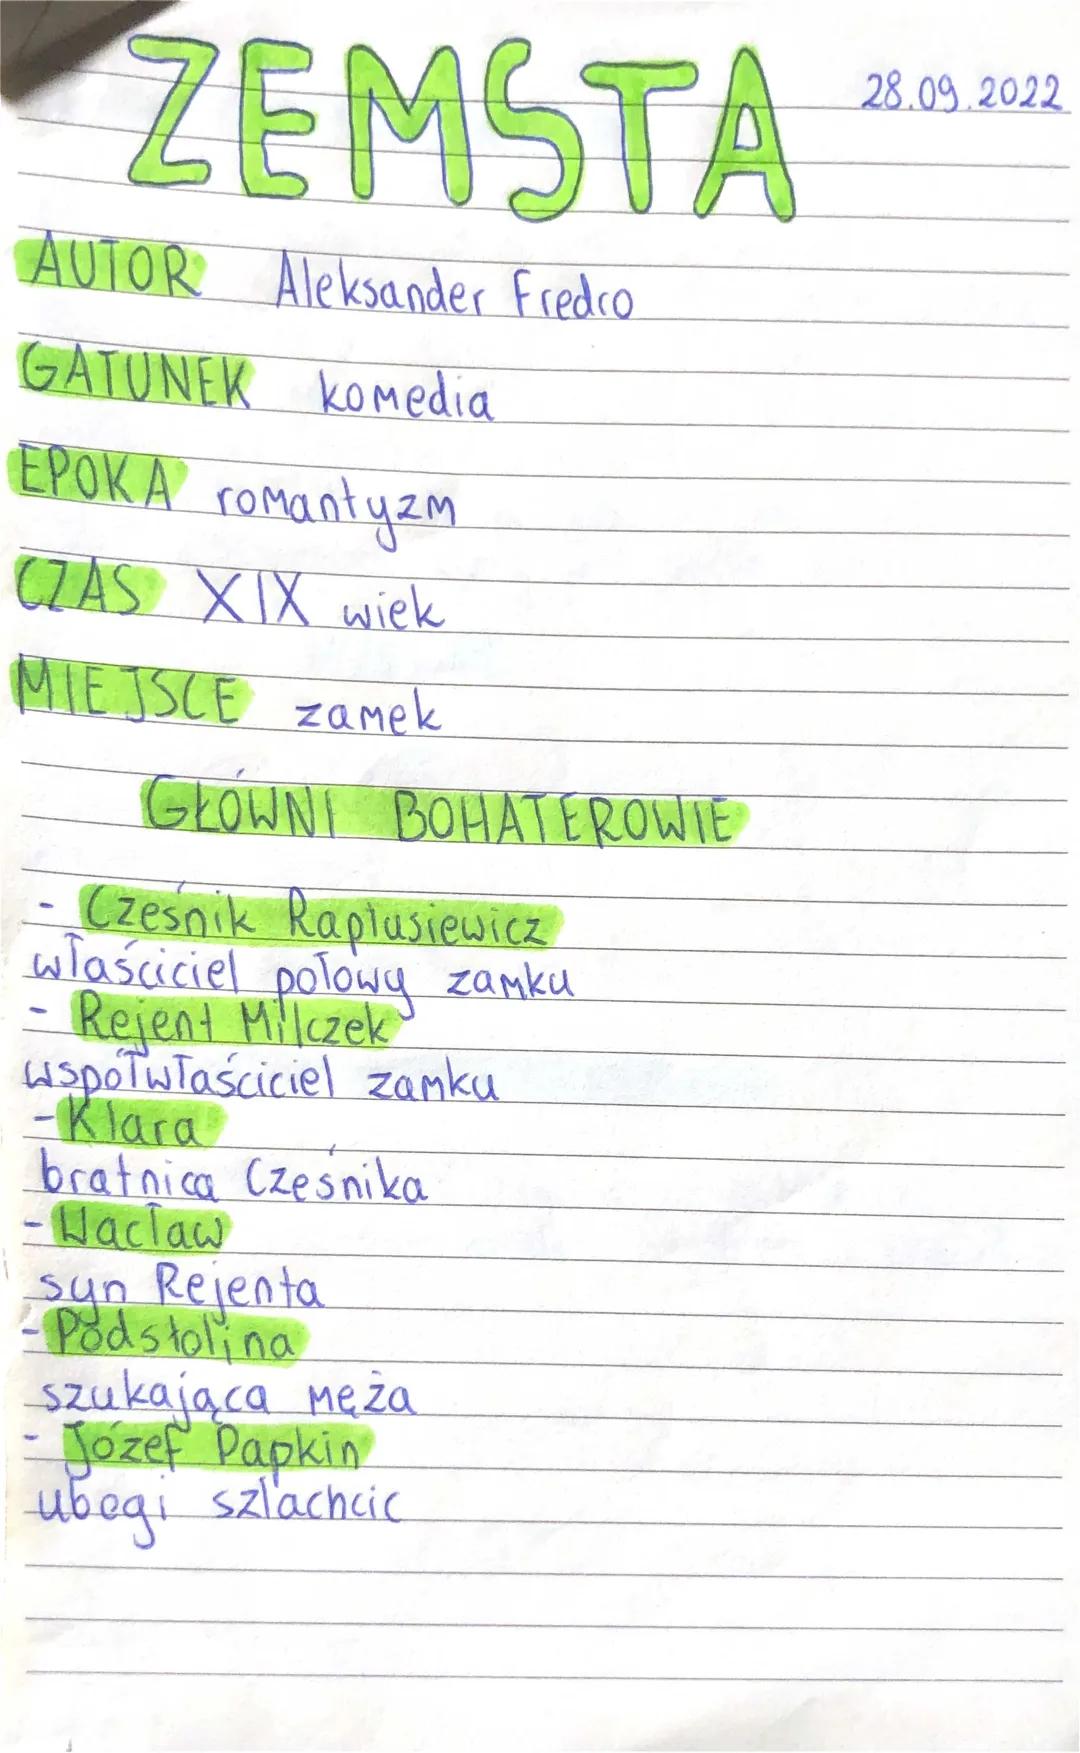 ZEMSTA 28.09.2022
AUTOR Aleksander Fredro
GATUNEK komedia
EPOKA romantyzm
CZAS XIX wiek
MIEJSCE zamek
GŁÓWNI BOHATEROWIE
- Cześnik Raptusiewicz
właściciel połowy zamku
- Rejent Milczek
współwłaściciel zamku
- Klara
bratnica Cześnika
- Wacław
syn Rejenta
- Podstolina
szukająca męża
- Józef Papkin
ubogi szlachcic